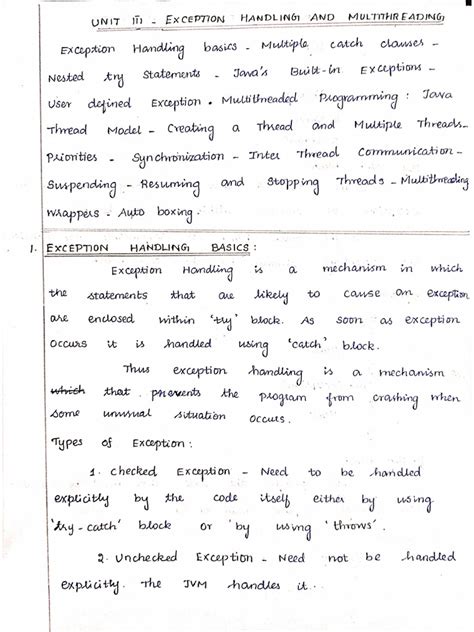 UNIT III - EXCEPTION HANDLING AND MULTITHREADING
Exception Handling basics - Multiple catch clauses -
Nested try Statements - Java's Built-in Exceptions -
User defined Exception. Multithreaded Programming : Java
Thread Model - Creating a Thread and Multiple Threads -
Priorities - Synchronization - Inter Thread Communication -
Suspending - Resuming and Stopping Threads - Multithreading
Wrappers - Auto boxing.
1. EXCEPTION HANDLING BASICS :
Exception Handling is a mechanism in which
the statements that are likely to cause an exception
are enclosed within 'try' block. As soon as exception
occurs it is handled using 'catch' block.
Thus exception handling is a mechanism
which that prevents the program from crashing when
some unusual situation occurs.
Types of Exception :
1. Checked Exception - Need to be handled
explicitly by the code itself either by using
'try-catch' block or by using 'throws'.
2. Unchecked Exception - Need not be handled
explicitly. The JVM handles it.